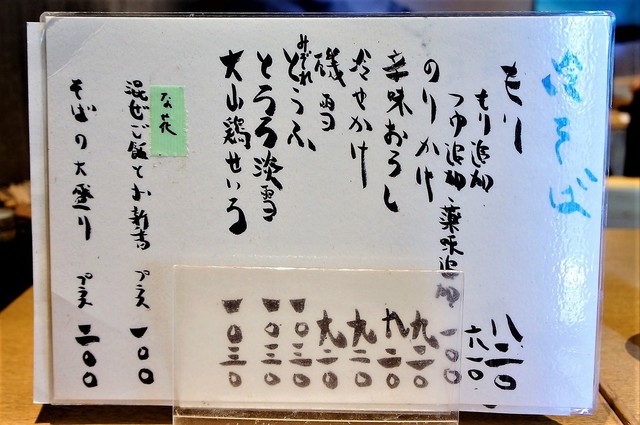 冷そば
もり 八二〇
もり追加 六一〇
つゆ追加・薬味追加 一〇〇
のりかけ 九二〇
辛味おろし 九二〇
冷やかけ 九二〇
磯雪 九二〇
みぞれとうふ 一〇三〇
とろろ淡雪 一〇三〇
大山鶏せいろ 一〇三〇
な花
混ぜご飯とお新香 プラス 一〇〇
そばの大盛り プラス 二〇〇